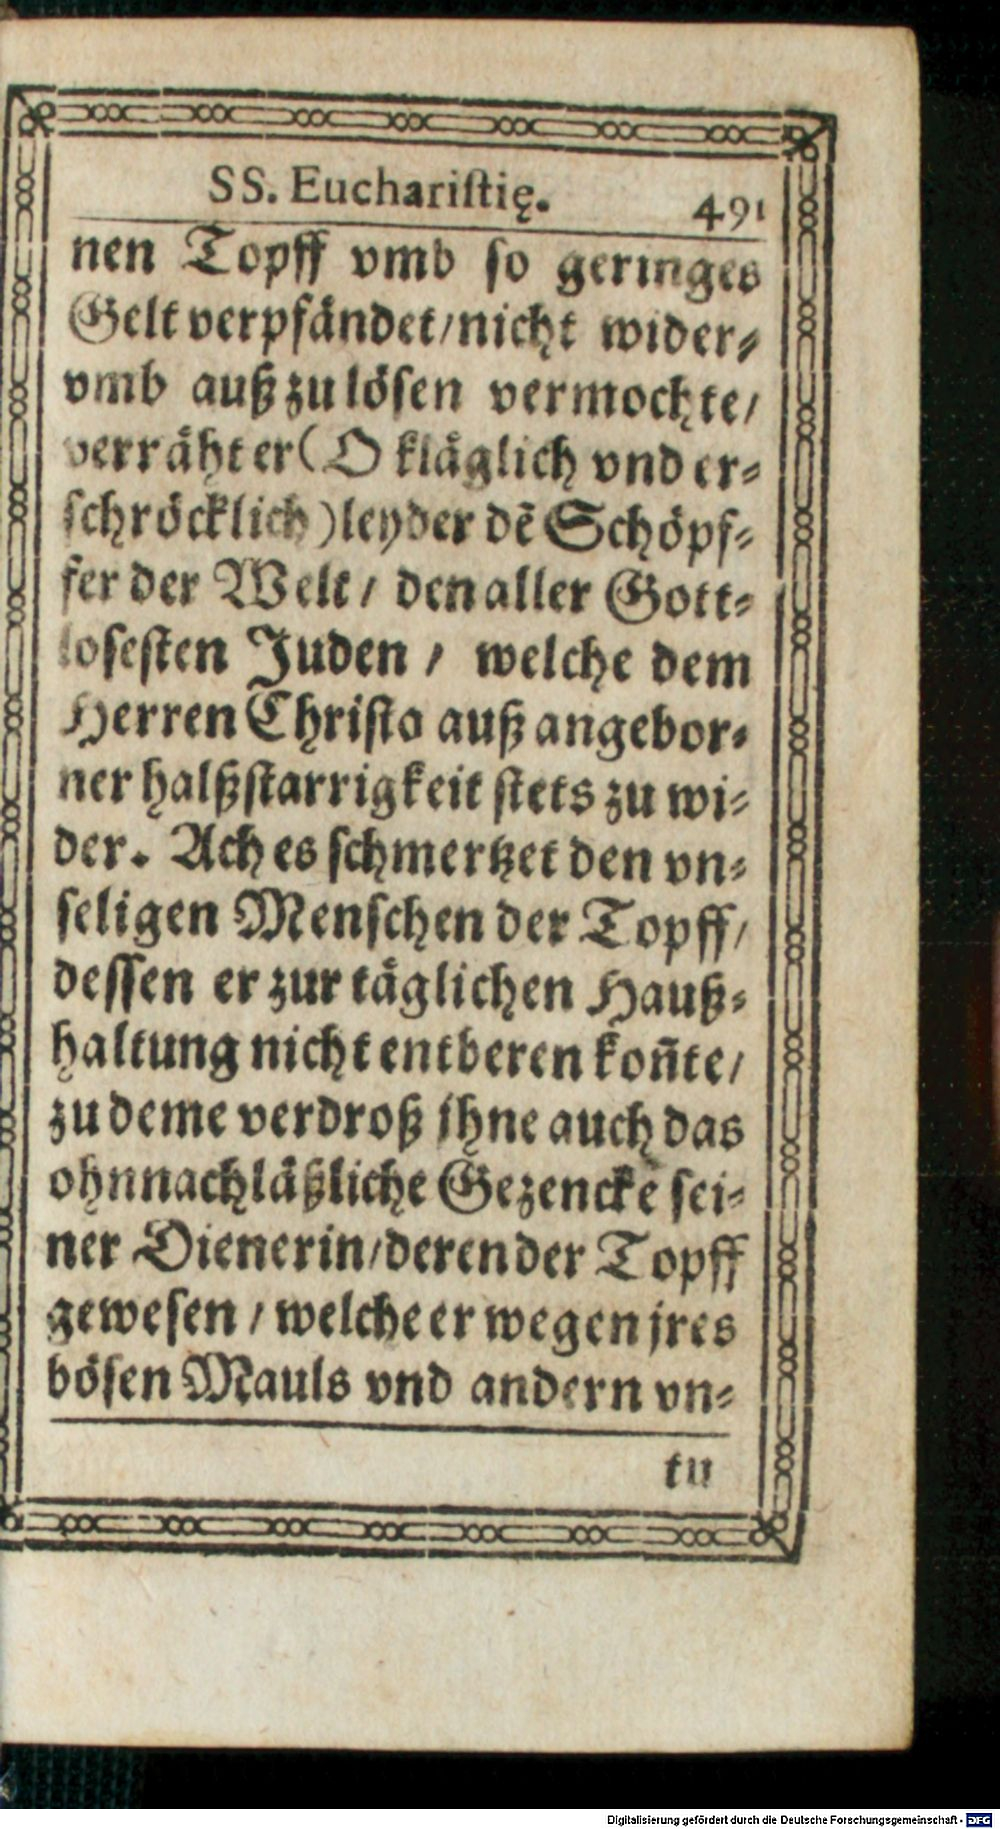 SS. Euchariſtię. 491
nen Topff vmb ſo geringes
Gelt verpfändet/nicht wider⸗
vmb auß zu löſen vermochte/
verräht er (O kläglich vnd er⸗
ſchröcklich) leyder dẽ Schöpf⸗
fer der Welt / den aller Gott⸗
loſeſten Juden / welche dem
Herren Chriſto auß angebor⸗
ner halßſtarrigkeit ſtets zu wi⸗
der. Ach es ſchmertzet den vn⸗
ſeligen Menſchen der Topff/
deſſen er zur täglichen Hauß⸗
haltung nicht entberen kon̄te/
zu deme verdroß jhne auch das
ohnnachläßliche Gezencke ſei⸗
ner Dienerin/deren der Topff
geweſen / welche er wegen jres
böſen Mauls vnd andern vn⸗
tu
Digitalisierung gefördert durch die Deutsche Forschungsgemeinschaft - DFG